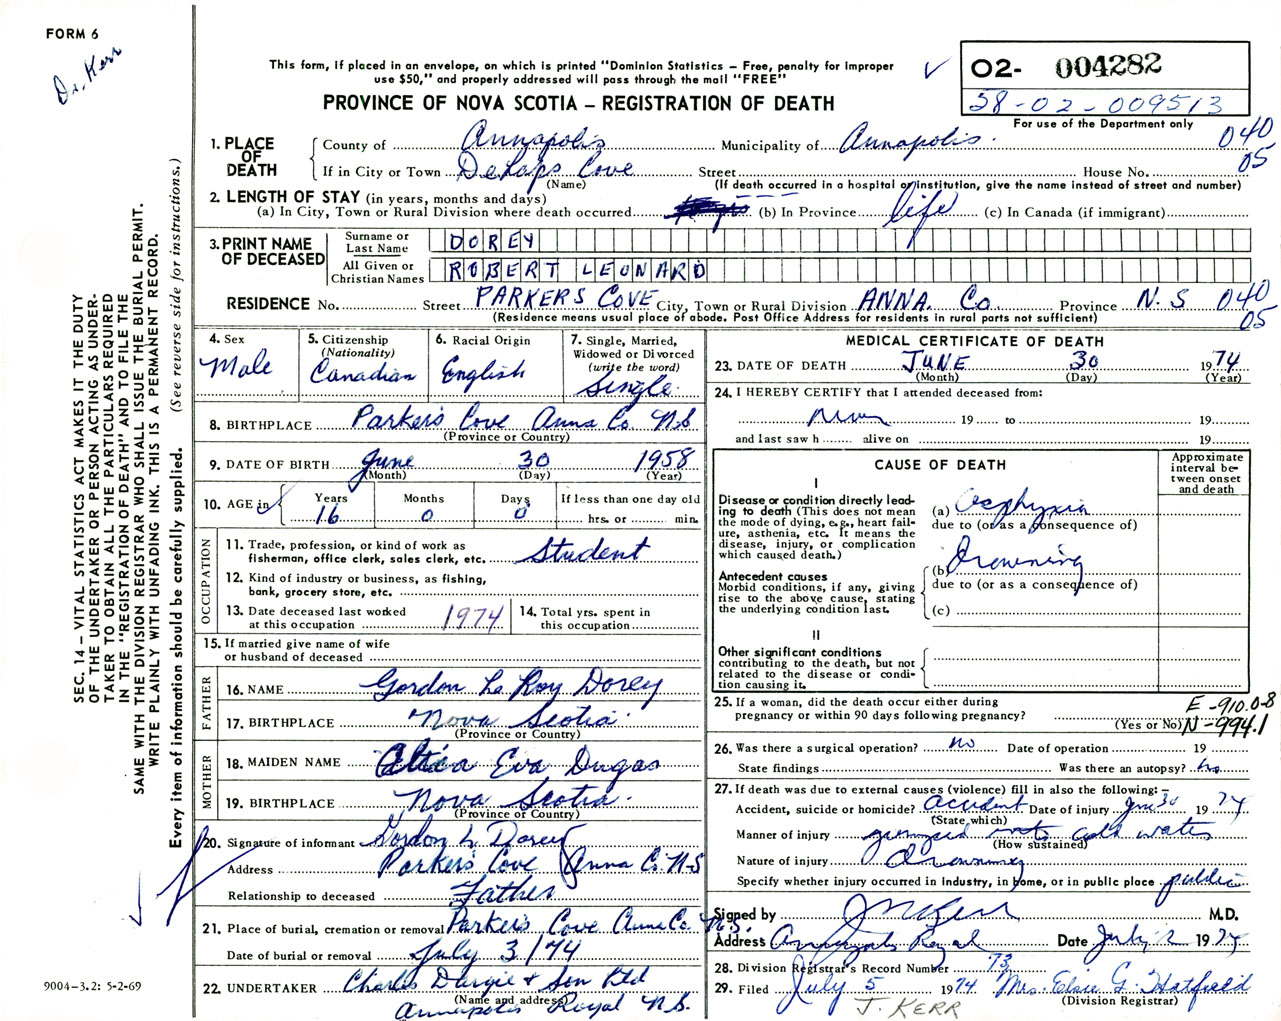 FORM 6
Dr. Kerr
This form, if placed in an envelope, on which is printed "Dominion Statistics – Free, penalty for improper
use $50," and properly addressed will pass through the mail "FREE"
PROVINCE OF NOVA SCOTIA – REGISTRATION OF DEATH
O2- 004282
58-02-009513
For use of the Department only
040
05
1. PLACE OF DEATH
County of Annapolis Municipality of Annapolis.
If in City or Town Delaps Cove Street House No.
(Name) (If death occurred in a hospital or institution, give the name instead of street and number)
2. LENGTH OF STAY (in years, months and days)
(a) In City, Town or Rural Division where death occurred (b) In Province life (c) In Canada (if immigrant)
3. PRINT NAME OF DECEASED
Surname or Last Name DOREY
All Given or Christian Names ROBERT LEONARD
RESIDENCE No. Street PARKERS COVE City, Town or Rural Division ANNA. Co. Province N.S 040
05
(Residence means usual place of abode. Post Office Address for residents in rural parts not sufficient)
4. Sex Male
5. Citizenship (Nationality) Canadian
6. Racial Origin English
7. Single, Married, Widowed or Divorced (write the word) Single
8. BIRTHPLACE Parker's Cove Anna Co. N.S
(Province or Country)
9. DATE OF BIRTH June 30 1958
(Month) (Day) (Year)
10. AGE in Years 16 Months 0 Days 0 If less than one day old hrs. or min.
OCCUPATION
11. Trade, profession, or kind of work as
fisherman, office clerk, sales clerk, etc. Student
12. Kind of industry or business, as fishing,
bank, grocery store, etc.
13. Date deceased last worked
at this occupation 1974
14. Total yrs. spent in
this occupation
15. If married give name of wife
or husband of deceased
FATHER
16. NAME Gordon Le Roy Dorey
17. BIRTHPLACE Nova Scotia.
(Province or Country)
MOTHER
18. MAIDEN NAME Eva Dugas
19. BIRTHPLACE Nova Scotia.
(Province or Country)
20. Signature of informant Gordon L. Dorey
Address Parker's Cove Anna Co. N-S
Relationship to deceased Father
21. Place of burial, cremation or removal Parker's Cove Anna Co. N.S.
Date of burial or removal July 3/74
22. UNDERTAKER Charles Dargie & Son Ltd
(Name and address)
Annapolis Royal N.S.
MEDICAL CERTIFICATE OF DEATH
23. DATE OF DEATH JUNE 30 1974
(Month) (Day) (Year)
24. I HEREBY CERTIFY that I attended deceased from:
19 to 19
and last saw h alive on 19
CAUSE OF DEATH
Approximate interval between onset and death
I
Disease or condition directly lead-
ing to death (This does not mean
the mode of dying, e.g., heart fail-
ure, asthenia, etc. It means the
disease, injury, or complication
which caused death.)
(a) Asphyxia
due to (or as a consequence of)
Antecedent causes
Morbid conditions, if any, giving
rise to the above cause, stating
the underlying condition last.
(b) Drowning
due to (or as a consequence of)
(c)
II
Other significant conditions
contributing to the death, but not
related to the disease or condi-
tion causing it.
25. If a woman, did the death occur either during
pregnancy or within 90 days following pregnancy?
(Yes or No)
E-910.0-8
N-994.1
26. Was there a surgical operation? no Date of operation 19
State findings Was there an autopsy? no
27. If death was due to external causes (violence) fill in also the following: –
Accident, suicide or homicide? accident Date of injury June 30 1974
(State which)
Manner of injury jumped into cold water
(How sustained)
Nature of injury Drowning
Specify whether injury occurred in industry, in home, or in public place public
Signed by J M Kerr M.D.
Address Annapolis Royal Date July 2 1974
28. Division Registrar's Record Number 73
29. Filed July 5 1974 Mrs. Elsie G. Hatfield
(Division Registrar)
J. KERR
SEC. 14 – VITAL STATISTICS ACT MAKES IT THE DUTY
OF THE UNDERTAKER OR PERSON ACTING AS UNDER-
TAKER TO OBTAIN ALL THE PARTICULARS REQUIRED
IN THE "REGISTRATION OF DEATH" AND TO FILE THE
SAME WITH THE DIVISION REGISTRAR WHO SHALL ISSUE THE BURIAL PERMIT.
WRITE PLAINLY WITH UNFADING INK. THIS IS A PERMANENT RECORD.
Every item of information should be carefully supplied. (See reverse side for instructions.)
9004-3.2: 5-2-69